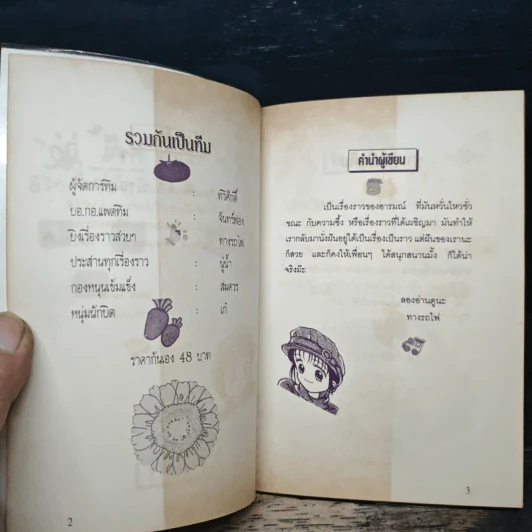 รวมกันเป็นทีม
ผู้จัดการทีม : ทวีศักดิ์
บอ.กอ.แพดทีม : จันทร์ผ่อง
ยิงเรื่องราวสวยๆ : ทางรถไฟ
ประสานทุกเรื่องราว : นุ่น้ำ
กองหนุนเข้มแข็ง : สมควร
หนุ่มนักบิด : เก๋
ราคากันเอง 48 บาท
2
คำนำผู้เขียน
เป็นเรื่องราวของอารมณ์ ที่มันหวั่นไหวชั่ว
ขณะ กับความซึ้ง หรือเรื่องราวที่ได้เผชิญมา มันทำให้
เรากลับมานั่งฝันอยู่ได้เป็นเรื่องเป็นราว แต่ฝันของเรานะ
ก็สวย และก็คงให้เพื่อนๆ ได้สนุกสนานมั้ง ก็ได้น่า
จริงม๊ะ
ลองอ่านดูนะ
ทางรถไฟ
3